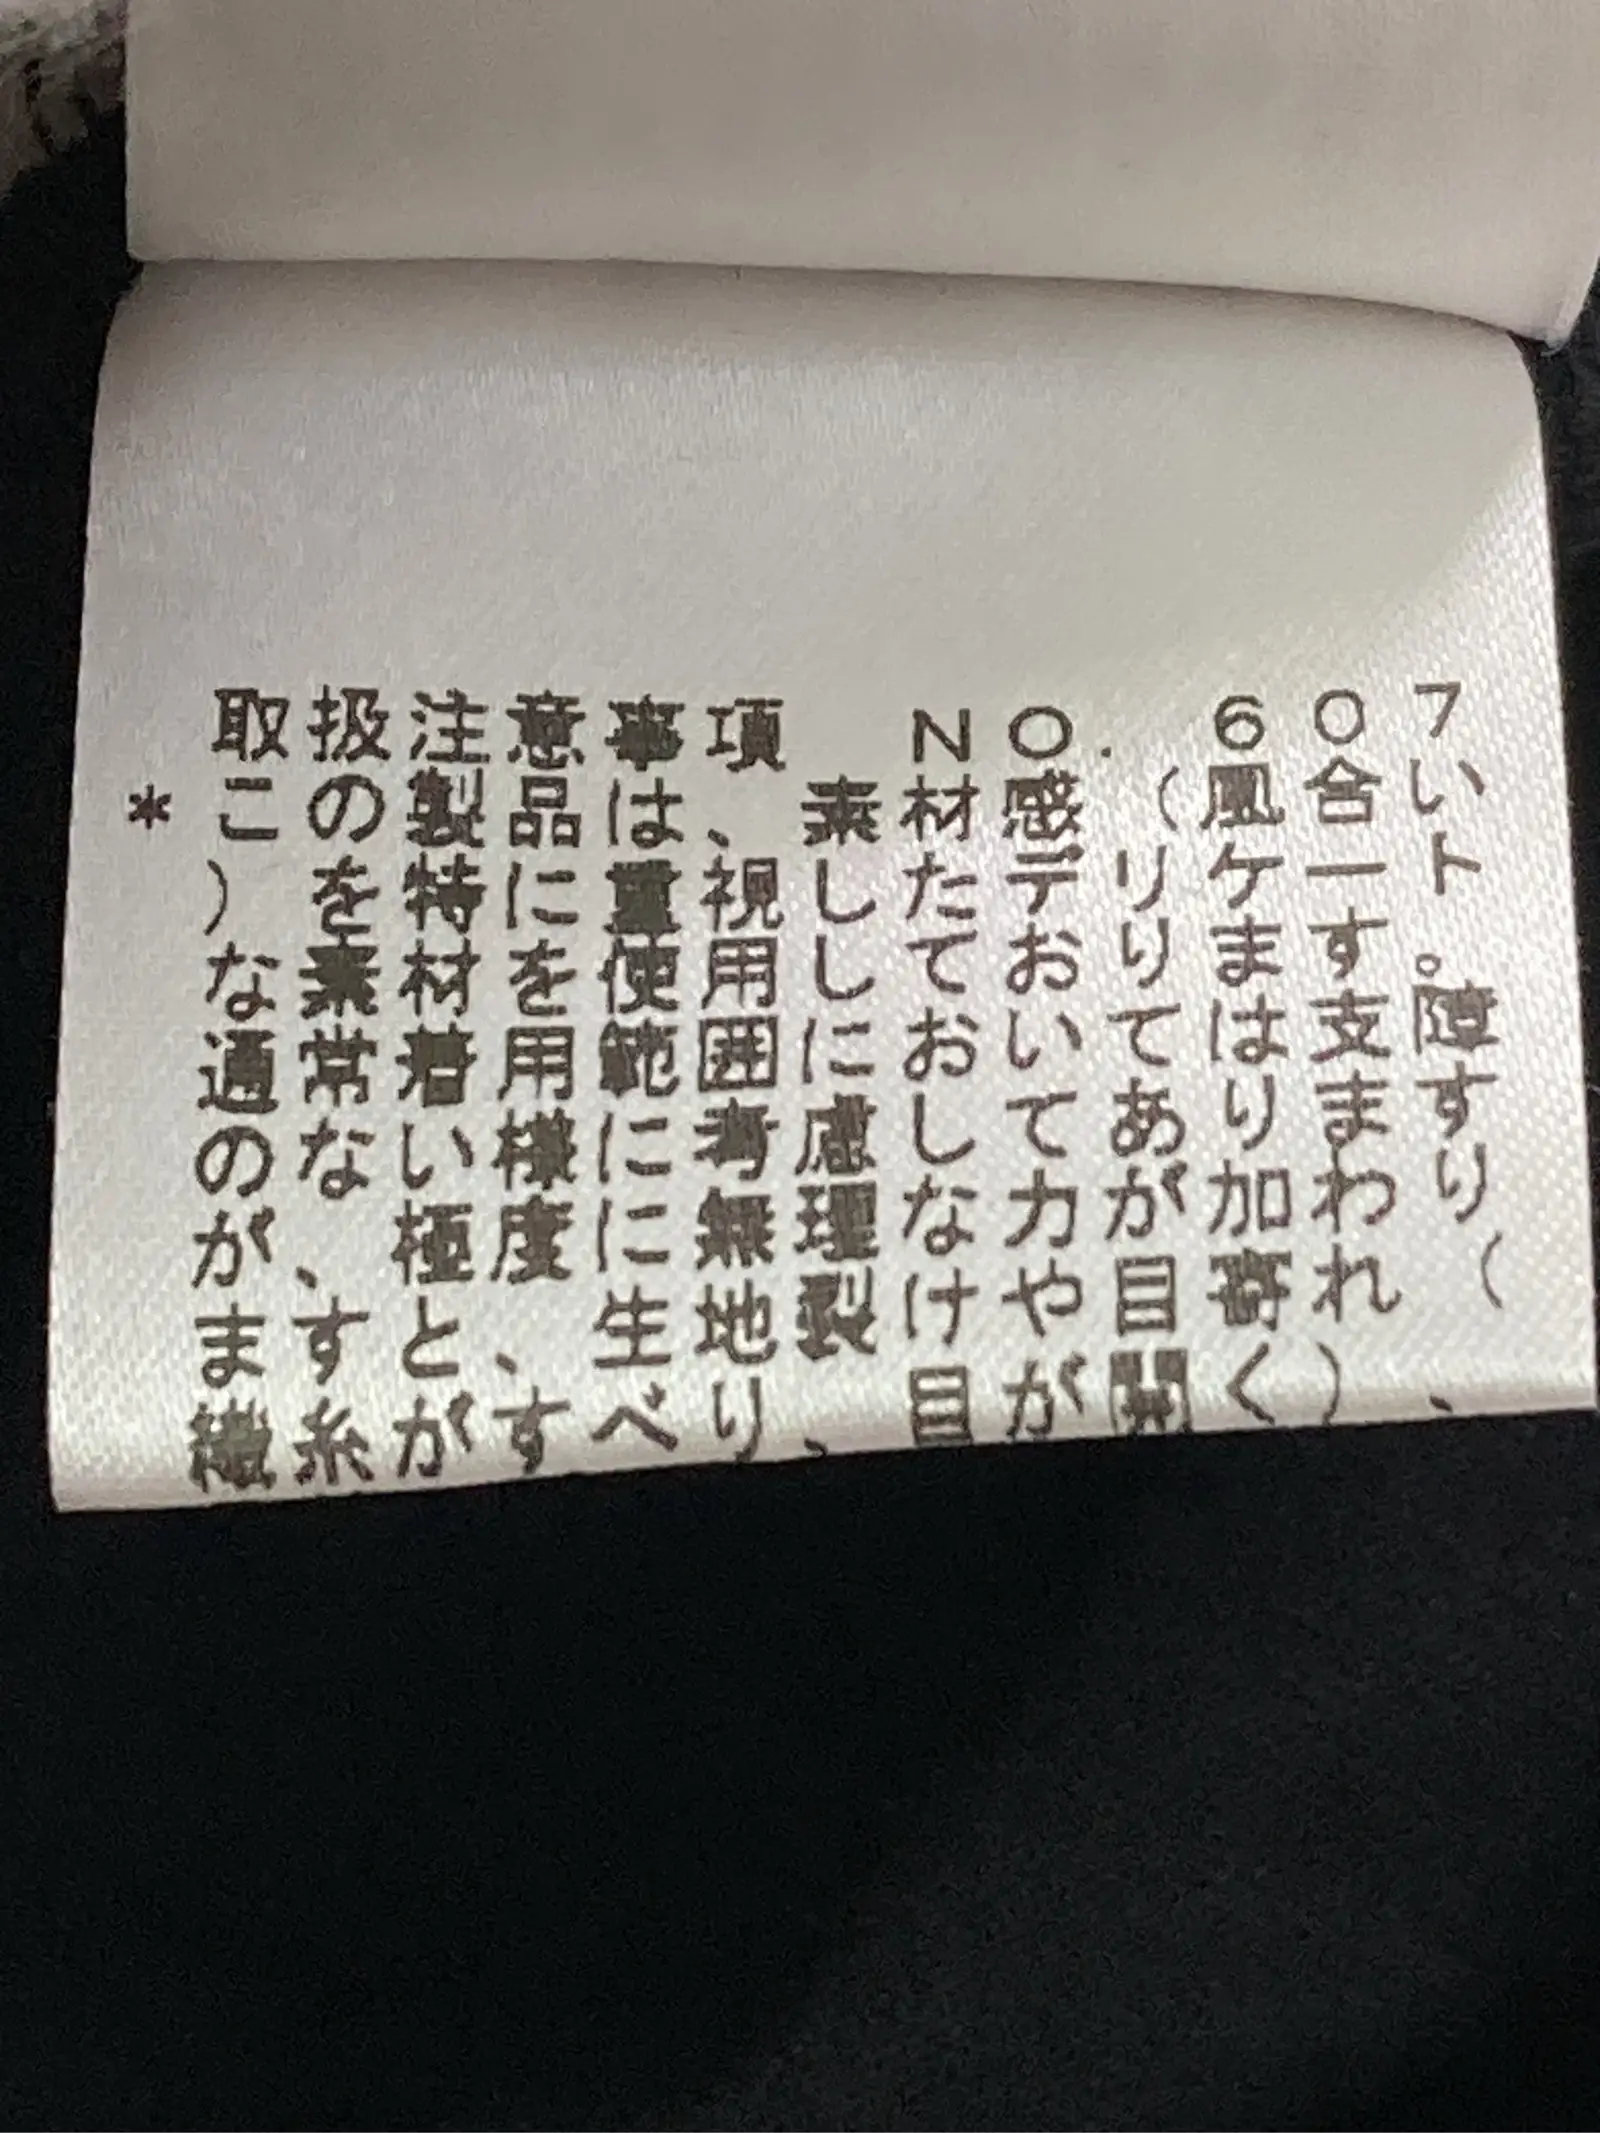 取扱注意事項　NO. 607
*この製品は、素材感(風合い
)を特に重視したデリケート
な素材を使用しております。
通常着用範囲においては支障
のない様に考慮してあります
が、極度に無理な力が加わり
ますと、生地裂けや目寄れ(
織糸がすべり、目が開く)、